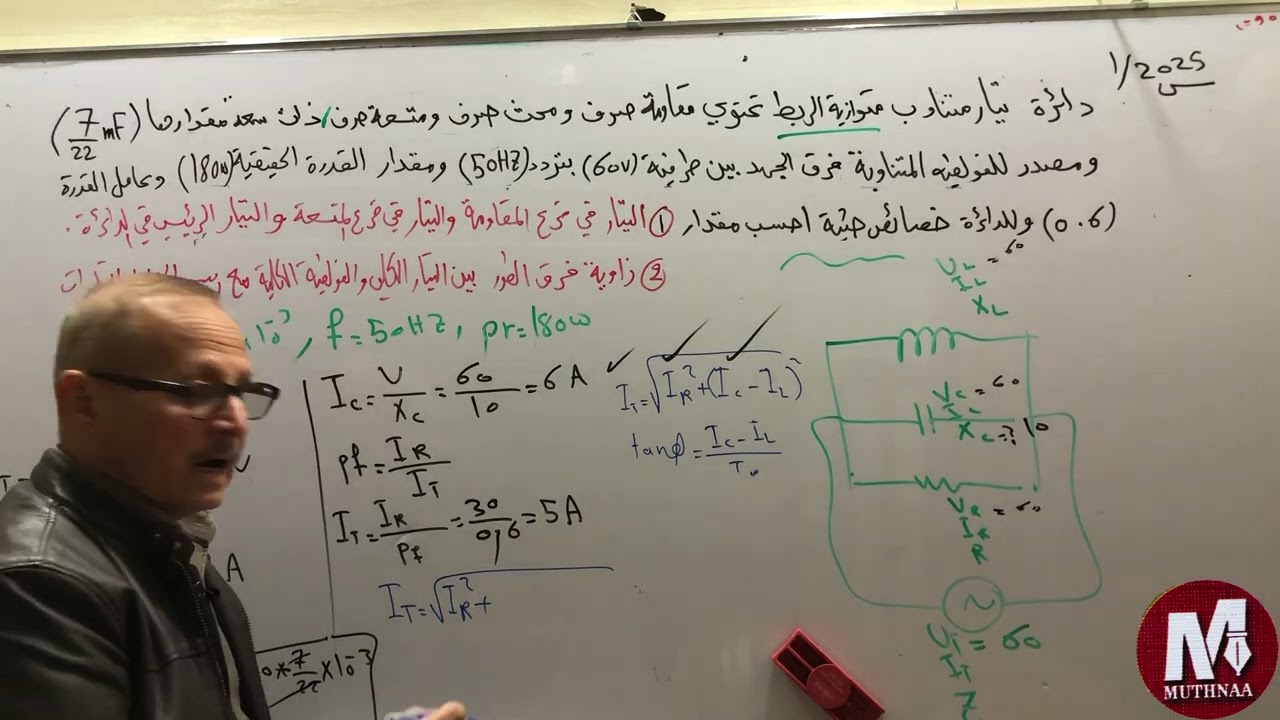 1/2025
س
دائرة تيار متناوب متوازية الربط تحتوي مقاومة صرف ومحث صرف ومتسعة صرف ذات سعة مقدارها (7/22 mF)
ومصدر للفولطية المتناوبة فرق الجهد بين طرفية (60V) بتردد (50HZ) ومقدار القدرة الحقيقية (180w) وعامل القدرة
(0.6) وللدائرة خصائص حثية احسب مقدار ① التيار في فرع المقاومة والتيار في فرع المتسعة والتيار الرئيس في الدائرة.
② زاوية فرق الطور بين التيار الكلي والفولطية الكلية مع
10⁻³, f=50HZ, pr=180w
I_C = V/X_C = 60/10 = 6 A
pf = I_R/I_T
I_T = I_R/pf = 30/0,6 = 5A
I_T = √I_R² +
I_T = √I_R² + (I_C - I_L)²
tanϕ = I_C - I_L
A
7/22 ×10⁻³
U_L = 60
I_L
X_L
V_C = 60
X_C = ? 10
V_R = 60
I_R
R
U_T = 60
I_T
Z
M
MUTHNAA